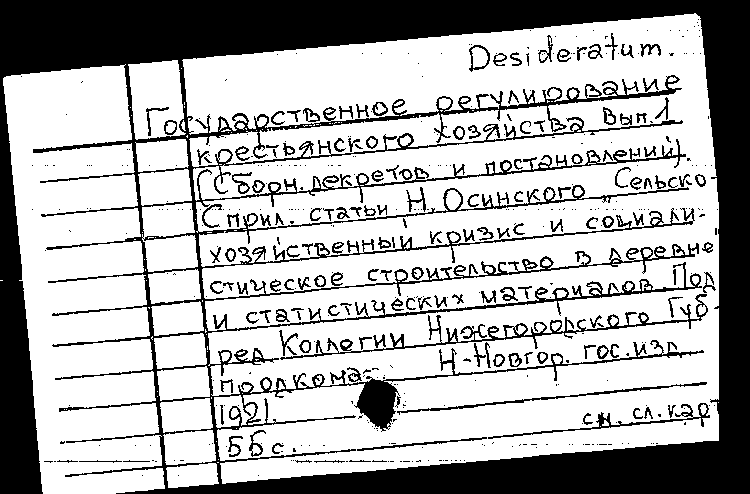 Desideratum.
Государственное регулирование
крестьянского хозяйства. Вып. 1
(Сборн. декретов и постановлений).
С прил. статьи Н. Осинского „Сельско-
хозяйственный кризис и социали-
стическое строительство в деревне"
и статистических материалов. Под
ред. Коллегии Нижегородского Губ-
продкома. Н-Новгор. гос. изд.
1921.
55 с. см. сл. карт